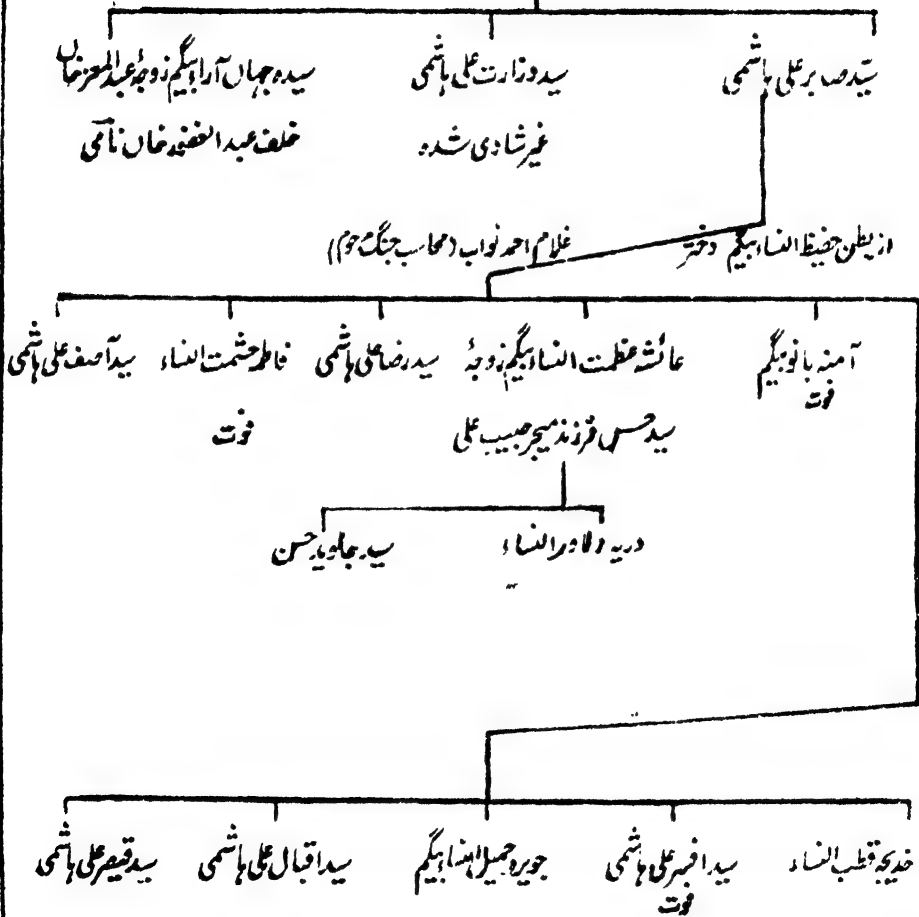 سید صابر علی ہاشمی
سید وزارت علی ہاشمی
غیر شادی شدہ
سیدہ جہاں آرا بیگم زوجۂ عبدالمعز خاں
خلف عبدالغفور خاں نامی
از بطن حفیظ النساء بیگم دختر غلام احمد نواب (محاسب جنگ مرحوم)
آمنہ بانو بیگم
فوت
عائشہ عظمت النساء بیگم زوجۂ
سید حسن فرزند میجر حبیب علی
سید رضا علی ہاشمی
فاطمہ حشمت النساء
فوت
سید آصف علی ہاشمی
دریہ دلاور النساء
سید جاوید حسن
خدیجہ قطب النساء
سید افسر علی ہاشمی
فوت
جویرہ جمیل النساء بیگم
سید اقبال علی ہاشمی
سید قیصر علی ہاشمی